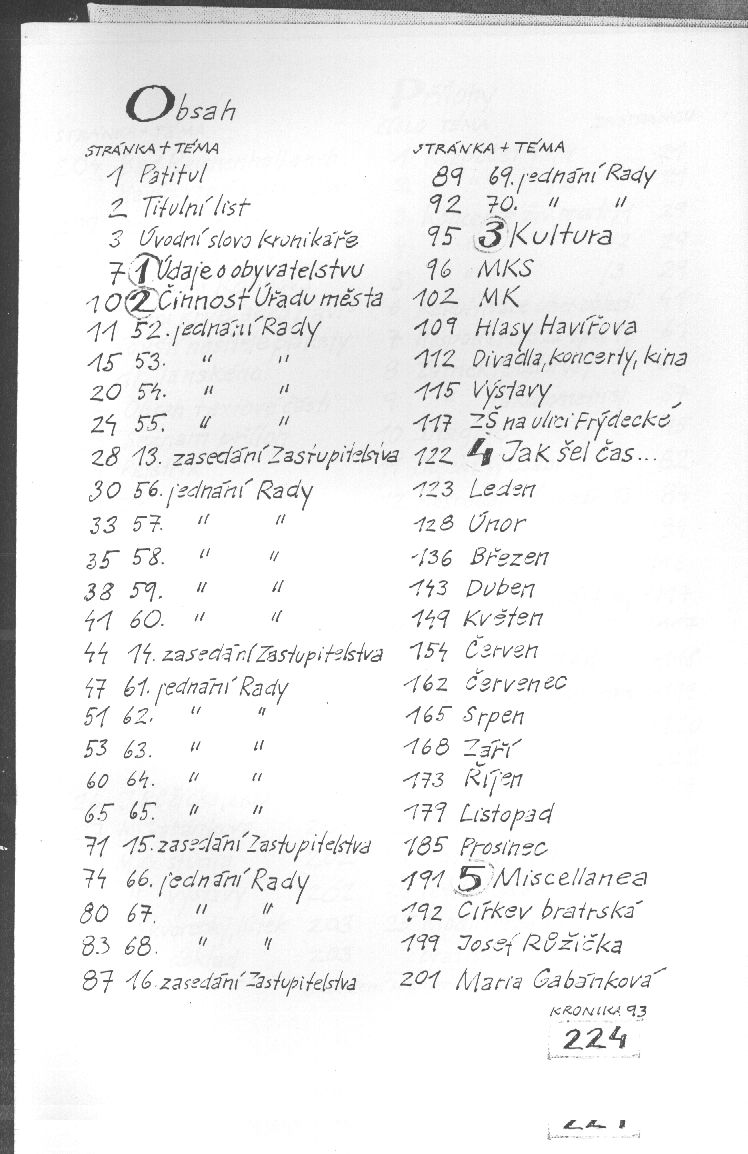 Obsah
STRÁNKA + TÉMA
1 Patitul
2 Titulní list
3 Úvodní slovo kronikáře
7 1 Údaje o obyvatelstvu
10 2 Činnost Úřadu města
11 52. jednání Rady
15 53. " "
20 54. " "
24 55. " "
28 13. zasedání Zastupitelstva
30 56. jednání Rady
33 57. " "
35 58. " "
38 59. " "
41 60. " "
44 14. zasedání Zastupitelstva
47 61. jednání Rady
51 62. " "
53 63. " "
60 64. " "
65 65. " "
71 15. zasedání Zastupitelstva
74 66. jednání Rady
80 67. " "
83 68. " "
87 16. zasedání Zastupitelstva
STRÁNKA + TÉMA
89 69. jednání Rady
92 70. " "
95 3 Kultura
96 MKS
102 MK
109 Hlasy Havířova
112 Divadla, koncerty, kina
115 Výstavy
117 ZŠ na ulici Frýdecké
122 4 Jak šel čas...
123 Leden
128 Únor
136 Březen
143 Duben
149 Květen
154 Červen
162 Červenec
165 Srpen
168 Září
173 Říjen
179 Listopad
185 Prosinec
191 5 Miscellanea
192 Církev bratrská
199 Josef Růžička
201 Maria Gabánková
KRONIKA 93
224